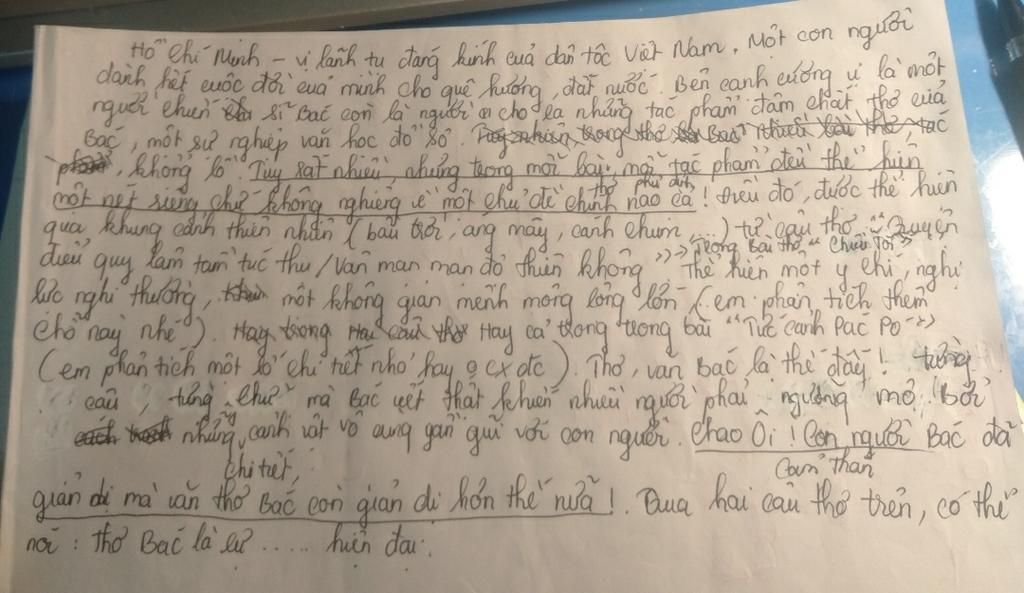 Hồ Chí Minh – vị lãnh tụ đáng kính của dân tộc Việt Nam. Một con người
dành hết cuộc đời của mình cho quê hương, đất nước. Bên cạnh cương vị là một
người chiến sĩ Bác còn là người cho ra những tác phẩm đậm chất thơ của
Bác, một sự nghiệp văn học đồ sộ.
, khổng lồ. Tuy rất nhiều, nhưng trong mỗi bài, mỗi tác phẩm đều thể hiện
thơ phủ định
một nét riêng chứ không nghiêng về một chủ đề chính nào cả! Điều đó, được thể hiện
qua khung cảnh thiên nhiên (bầu trời, áng mây, cánh chim,...) từ câu thơ "Quyện
Trong Bài thơ "Chiều Tối"
điểu quy lâm tầm túc thụ / Vân mạn mạn độ thiên không" Thể hiện một ý chí, nghị
lực phi thường, một không gian mênh mông rộng lớn (em phân tích thêm
chỗ này nhé). Hay cả trong trong bài "Tức cảnh Pác Pó"
(em phân tích một số chi tiết nhỏ hay cx đc). Thơ, văn Bác là thế đấy! từng
câu, từng chữ mà Bác viết thật khiến nhiều người phải ngưỡng mộ! Bởi
những cảnh vật vô cùng gần gũi với con người. Chao Ôi! Con người Bác đã
chi tiết,
Cảm thán
giản dị mà văn thơ Bác còn giản dị hơn thế nữa! Qua hai câu thơ trên, có thể
nói: Thơ Bác là sự ..... hiện đại.